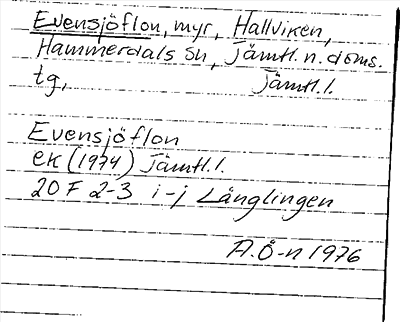 Evensjöflon, myr, Hallviken,
Hammerdals sn, Jämtl. n. doms.
tg, Jämtl. l.
Evensjöflon
ek (1974) Jämtl. l.
20F 2-3 i-j Långlingen
A.Ö-n 1976